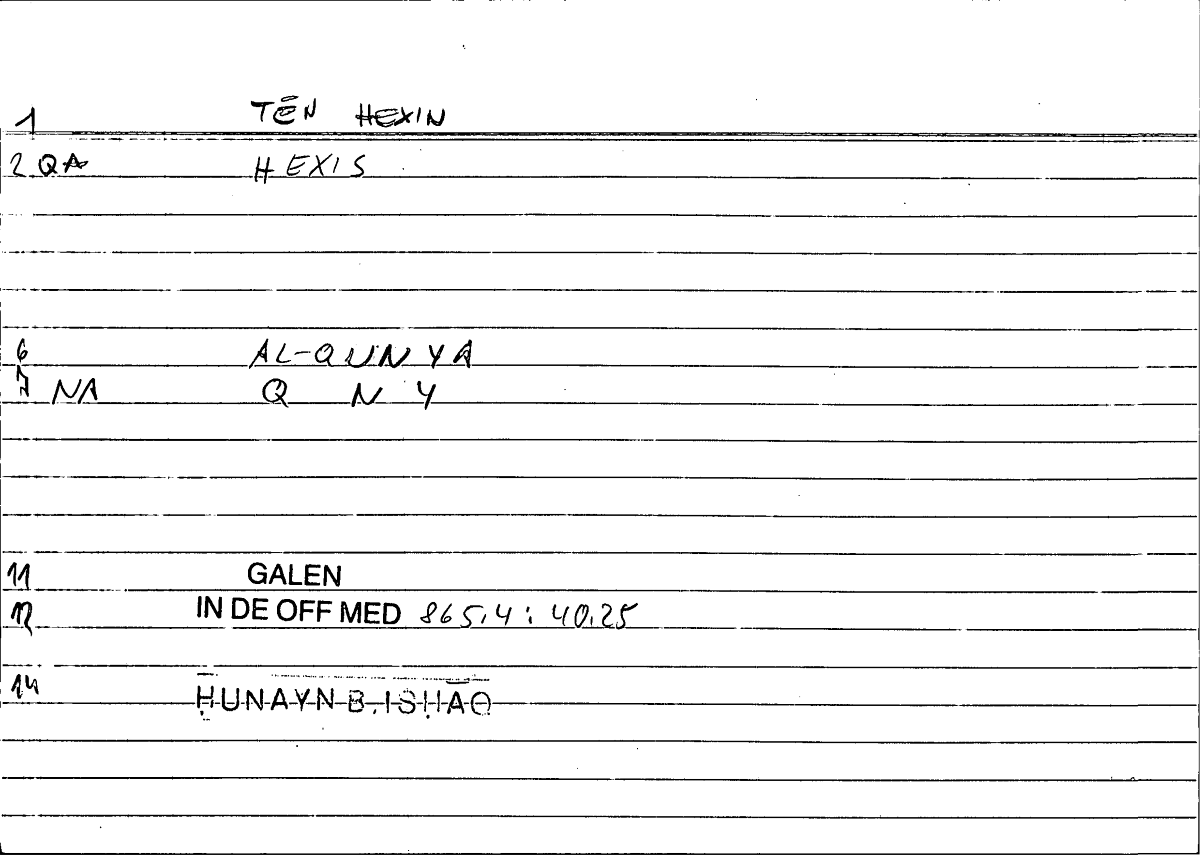 1 TĒN HEXIN
2 QA HEXIS
6 AL-QUNYA
7 NA Q N Y
11 GALEN
12 IN DE OFF MED 865,4 : 40,25
14 ḤUNAYN B. ISḤĀQ